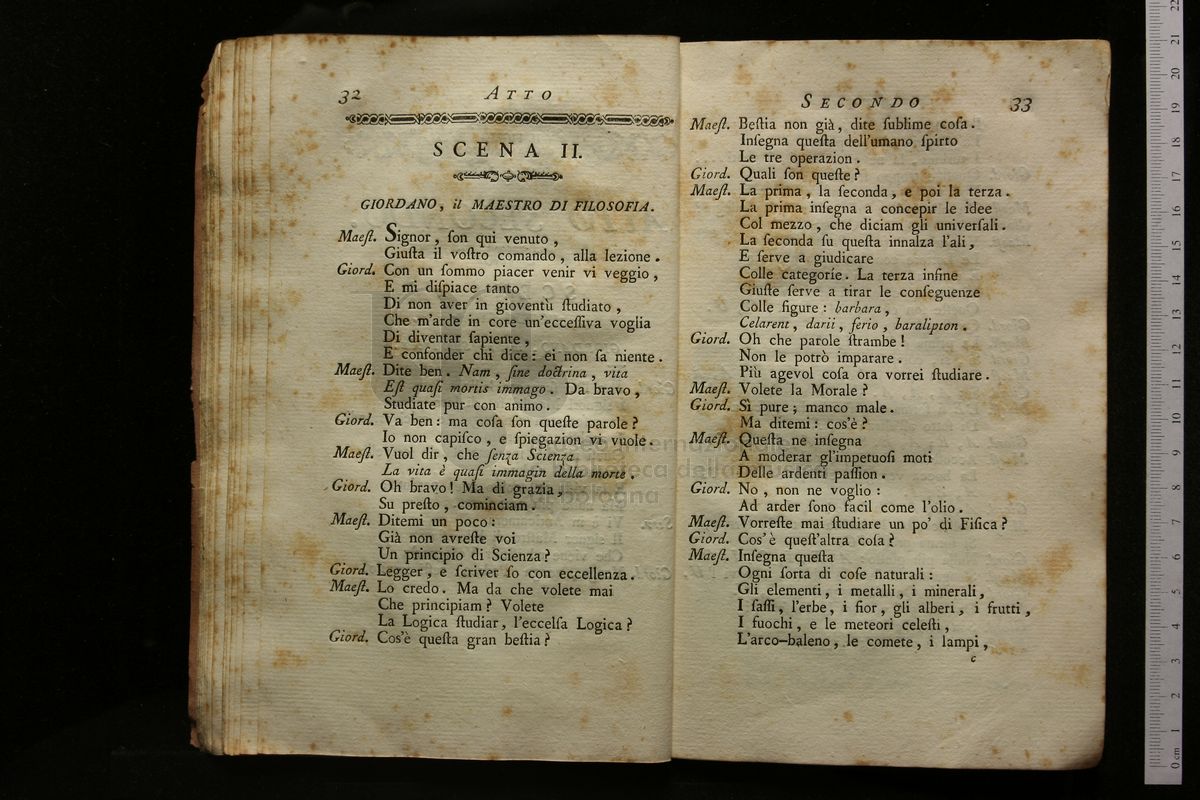 32 ATTO
SCENA II.
GIORDANO, il MAESTRO DI FILOSOFIA.
Maeſt. Signor, ſon qui venuto,
Giuſta il voſtro comando, alla lezione.
Giord. Con un ſommo piacer venir vi veggio,
E mi diſpiace tanto
Di non aver in gioventù ſtudiato,
Che m'arde in core un'ecceſſiva voglia
Di diventar ſapiente,
E confonder chi dice: ei non ſa niente.
Maeſt. Dite ben. Nam, ſine doctrina, vita
Eſt quaſi mortis immago. Da bravo,
Studiate pur con animo.
Giord. Va ben: ma coſa ſon queſte parole?
Io non capiſco, e ſpiegazion vi vuole.
Maeſt. Vuol dir, che ſenza Scienza
La vita è quaſi immagin della morte.
Giord. Oh bravo! Ma di grazia,
Su preſto, cominciam.
Maeſt. Ditemi un poco:
Già non avreſte voi
Un principio di Scienza?
Giord. Legger, e ſcriver ſo con eccellenza.
Maeſt. Lo credo. Ma da che volete mai
Che principiam? Volete
La Logica ſtudiar, l'eccelſa Logica?
Giord. Cos'è queſta gran beſtia?
SECONDO 33
Maeſt. Beſtia non già, dite ſublime coſa.
Inſegna queſta dell'umano ſpirto
Le tre operazion.
Giord. Quali ſon queſte?
Maeſt. La prima, la ſeconda, e poi la terza.
La prima inſegna a concepir le idee
Col mezzo, che diciam gli univerſali.
La ſeconda ſu queſta innalza l'ali,
E ſerve a giudicare
Colle categoríe. La terza inſine
Giuſte ſerve a tirar le conſeguenze
Colle figure: barbara,
Celarent, darii, ferio, baralipton.
Giord. Oh che parole ſtrambe!
Non le potrò imparare.
Più agevol coſa ora vorrei ſtudiare.
Maeſt. Volete la Morale?
Giord. Sì pure; manco male.
Ma ditemi: cos'è?
Maeſt. Queſta ne inſegna
A moderar gl'impetuoſi moti
Delle ardenti paſſion.
Giord. No, non ne voglio:
Ad arder ſono facil come l'olio.
Maeſt. Vorreſte mai ſtudiare un po' di Fiſica?
Giord. Cos'è queſt'altra coſa?
Maeſt. Inſegna queſta
Ogni ſorta di coſe naturali:
Gli elementi, i metalli, i minerali,
I ſaſſi, l'erbe, i fior, gli alberi, i frutti,
I fuochi, e le meteori celeſti,
L'arco-baleno, le comete, i lampi,
c